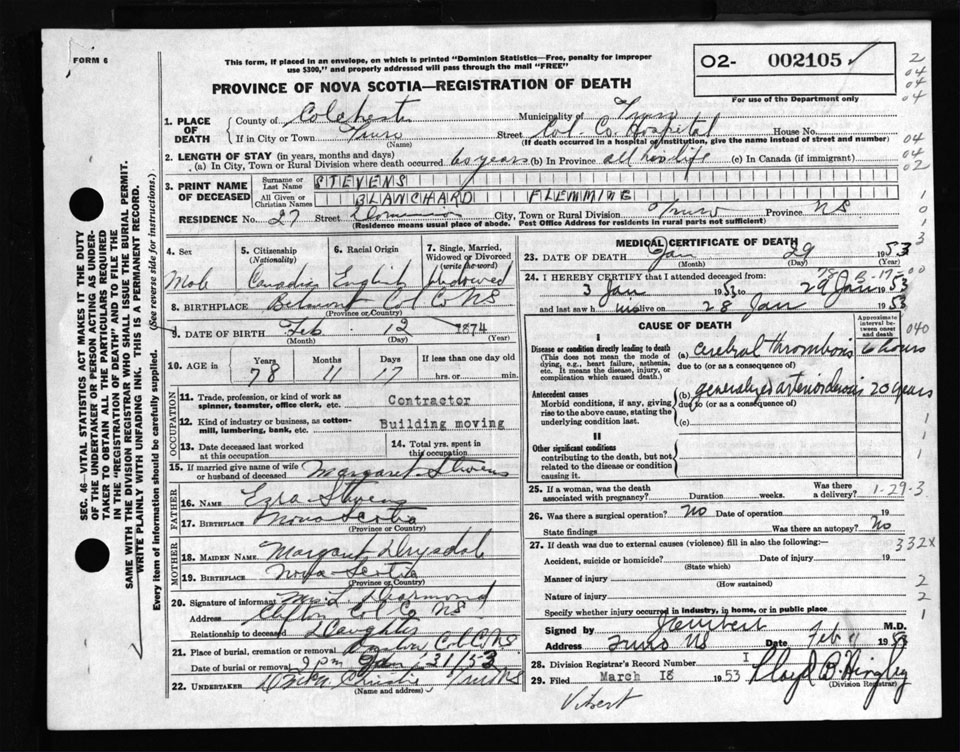 FORM 6
This form, if placed in an envelope, on which is printed "Dominion Statistics—Free, penalty for improper
use $300," and properly addressed will pass through the mail "FREE"
O2- 002105 ✓
For use of the Department only
PROVINCE OF NOVA SCOTIA—REGISTRATION OF DEATH
2
04
04
04
04
04
02
1
0
1
3
1. PLACE OF DEATH
County of Colchester Municipality of Truro
If in City or Town Truro Street Col. Co. Hospital House No.
(Name) (If death occurred in a hospital or institution, give the name instead of street and number)
2. LENGTH OF STAY (in years, months and days)
(a) In City, Town or Rural Division where death occurred 60 years (b) In Province all his life (c) In Canada (if immigrant)
3. PRINT NAME OF DECEASED
Surname or Last Name STEVENS
All Given or Christian Names BLANCHARD FLEMMING
RESIDENCE No. 27 Street Dominion City, Town or Rural Division Truro Province NS
(Residence means usual place of abode. Post Office Address for residents in rural parts not sufficient)
4. Sex Male
5. Citizenship (Nationality) Canadian
6. Racial Origin English
7. Single, Married, Widowed or Divorced (write the word) Widowed
8. BIRTHPLACE Belmont Col Co NS
(Province or Country)
9. DATE OF BIRTH Feb. 12 1874
(Month) (Day) (Year)
10. AGE in Years 78 Months 11 Days 17 If less than one day old hrs. or min.
OCCUPATION
11. Trade, profession, or kind of work as spinner, teamster, office clerk, etc. Contractor
12. Kind of industry or business, as cotton-mill, lumbering, bank, etc. Building moving
13. Date deceased last worked at this occupation
14. Total yrs. spent in this occupation
15. If married give name of wife or husband of deceased Margaret Stevens
FATHER
16. NAME Ezra Stevens
17. BIRTHPLACE Nova Scotia
(Province or Country)
MOTHER
18. MAIDEN NAME Margaret Drysdale
19. BIRTHPLACE Nova Scotia
(Province or Country)
20. Signature of informant Mrs L Dearmond
Address Clifton Col. Co NS
Relationship to deceased Daughter
21. Place of burial, cremation or removal Onslow Col Co NS
Date of burial or removal 2 pm Jan 31/53
22. UNDERTAKER Christie Truro NS
(Name and address)
MEDICAL CERTIFICATE OF DEATH
23. DATE OF DEATH Jan 29 1953
(Month) (Day) (Year)
24. I HEREBY CERTIFY that I attended deceased from:
3 Jan 1953 to 29 Jan 1953
and last saw him alive on 28 Jan 1953
CAUSE OF DEATH
Approximate interval between onset and death
040
I
Disease or condition directly leading to death
(This does not mean the mode of dying, e.g., heart failure, asthenia, etc. It means the disease, injury, or complication which caused death.)
(a) cerebral thrombosis 6 hours
due to (or as a consequence of)
Antecedent causes
Morbid conditions, if any, giving rise to the above cause, stating the underlying condition last.
(b) generalized arteriosclerosis 20 years
due to (or as a consequence of)
(c)
II
Other significant conditions
contributing to the death, but not related to the disease or condition causing it.
1
1
1
25. If a woman, was the death associated with pregnancy? Duration weeks. Was there a delivery? 1-29-3
26. Was there a surgical operation? No Date of operation 19
State findings Was there an autopsy? No
27. If death was due to external causes (violence) fill in also the following:— 332X
Accident, suicide or homicide? Date of injury 19
(State which)
Manner of injury 2
(How sustained)
Nature of injury 2
Specify whether injury occurred in industry, in home, or in public place 1
Signed by M.D.
Address Truro NS Date Feb 1953
28. Division Registrar's Record Number
29. Filed March 18 1953 Lloyd B. Hingley
(Division Registrar)
Vibert
SEC. 46—VITAL STATISTICS ACT MAKES IT THE DUTY
OF THE UNDERTAKER OR PERSON ACTING AS UNDER-
TAKER TO OBTAIN ALL THE PARTICULARS REQUIRED
IN THE "REGISTRATION OF DEATH" AND TO FILE THE
SAME WITH THE DIVISION REGISTRAR WHO SHALL ISSUE THE BURIAL PERMIT.
WRITE PLAINLY WITH UNFADING INK. THIS IS A PERMANENT RECORD.
Every item of Information should be carefully supplied. (See reverse side for instructions.)